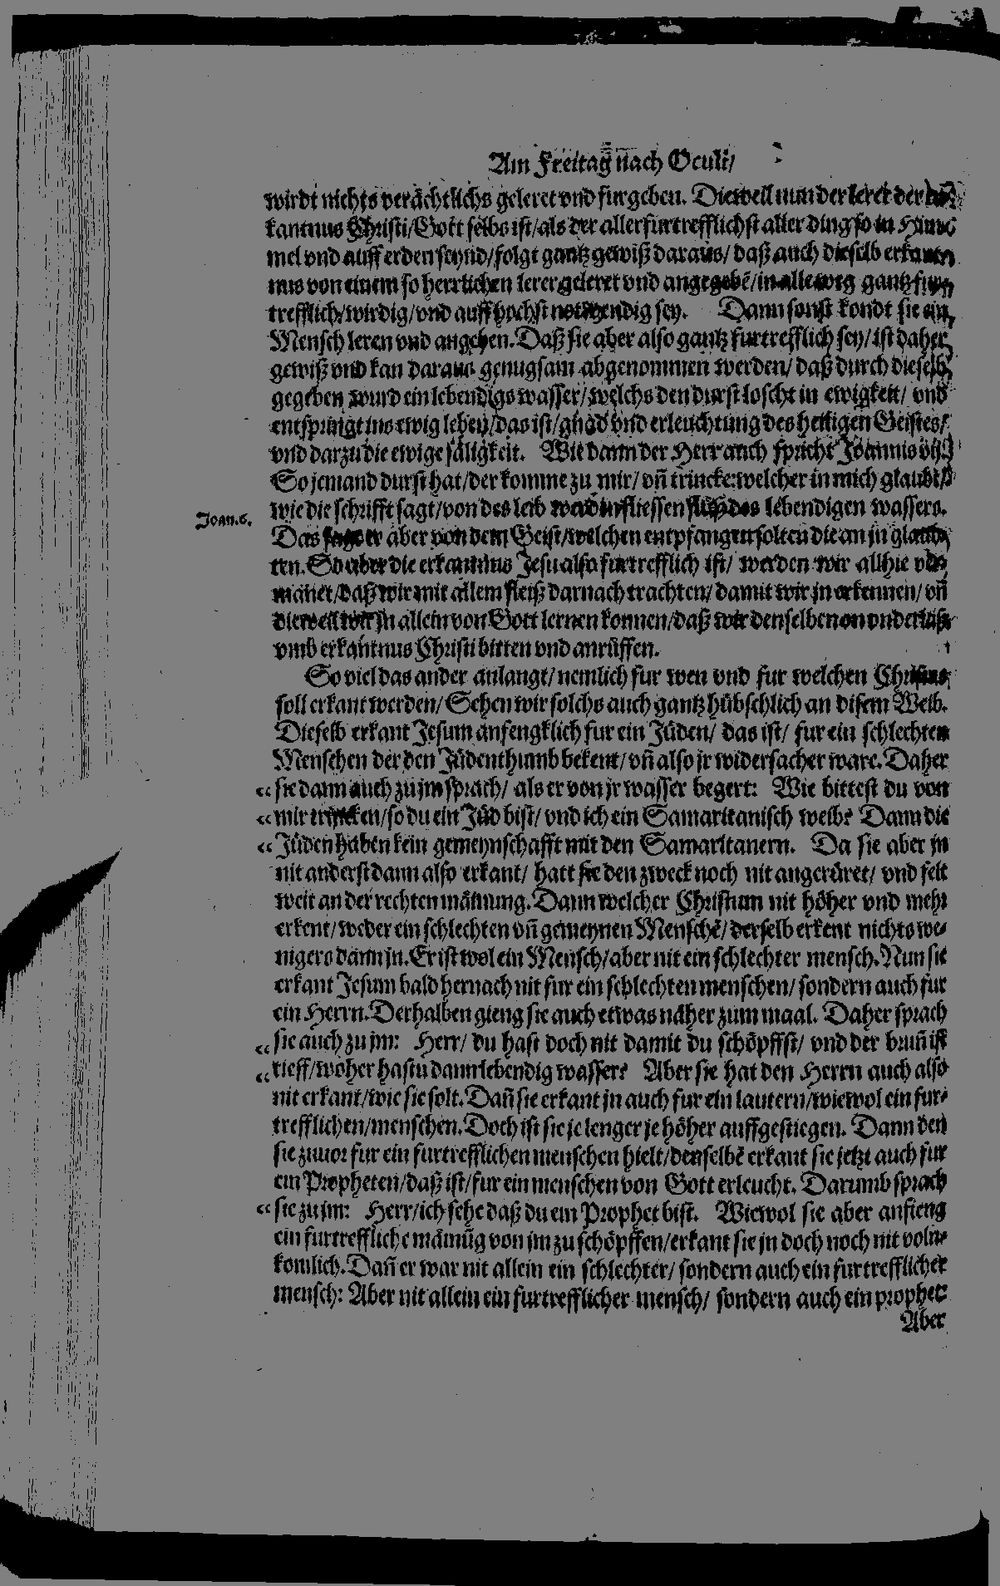 Am Freitag nach Oculi/
wirdt nichts verächtlichs geleret vnd furgeben. Dieweil nun der lerer der er-
kantnus Christi/Gott selbs ist/als der allerfurtrefflichst aller ding so in Him-
mel vnd auff erden seynd/folgt gantz gewiß daraus/ daß auch dieselb erkant-
nus von einem so herrlichen lerer geleret vnd angegebē/in alleweg gantz fur-
trefflich/wirdig/vnd auff hochst notwendig sey. Dann sonst kondt sie ein
Mensch leren vnd angeben. Daß sie aber also gantz furtrefflich sey/ist daher
gewiß vnd kan daraus genugsam abgenommen werden/ daß durch dieselb
gegeben wurd ein lebendigs wasser/welchs den durst loscht in ewigkeit/ vnd
entspringt ins ewig leben/das ist/gnad vnd erleuchtung des heiligen Geistes/
vnd darzu die ewige säligkeit. Wie dann der Herr auch spricht Joannis vij.
So jemand durst hat/der komme zu mir/ vn̄ trincke: welcher in mich glaubt/
wie die schrifft sagt/von des leib werden fliessen fluß des lebendigen wassers.
Joan.6.
Das sagt er aber von dem Geist/welchen entpfangen solten die an jn glaub-
ten. So aber die erkantnus Jesu also furtrefflich ist/ werden wir allhie ver-
mānet/daß wir mit allem fleiß darnach trachten/ damit wir jn erkennen/ vn̄
dieweil wir jn allein von Gott lernen konnen/daß wir denselben on vnderlaß
vmb erkantnus Christi bitten vnd anrüffen.
So viel das ander anlangt/ nemlich fur wen vnd fur welchen Christus
soll erkant werden/ Sehen wir solchs auch gantz hübschlich an disem Weib.
Dieselb erkant Jesum anfengklich fur ein Jüden/ das ist/ fur ein schlechten
Menschen der den Jüdenthumb bekent/ vn̄ also jr widersacher ware. Daher
sie dann auch zu jm sprach/ als er von jr wasser begert: Wie bittest du von
mir trincken/so du ein Jüd bist/ vnd ich ein Samaritanisch weib? Dann die
Jüden haben kein gemeynschafft mit den Samaritanern. Da sie aber jn
nit anderst dann also erkant/ hatt sie den zweck noch nit angerüret/ vnd felt
weit an der rechten mäinung. Dann welcher Christum nit höher vnd mehr
erkent/weder ein schlechten vn̄ gemeynen Menschē/ derselb erkent nichts we-
nigers dann jn. Er ist wol ein Mensch/aber nit ein schlechter mensch. Nun sie
erkant Jesum bald hernach nit fur ein schlechten menschen/ sondern auch fur
ein Herrn. Derhalben gieng sie auch etwas näher zum maal. Daher sprach
sie auch zu jm: Herr/ du hast doch nit damit du schöpffst/ vnd der brun̄ ist
tieff/woher hastu dann lebendig wasser? Aber sie hat den Herrn auch also
nit erkant/wie sie solt. Dan̄ sie erkant jn auch fur ein lautern/wiewol ein fur-
trefflichen/menschen. Doch ist sie je lenger je höher auffgestiegen. Dann den
sie zuuor fur ein furtrefflichen menschen hielt/denselbē erkant sie jetzt auch fur
ein Propheten/daß ist/fur ein menschen von Gott erleucht. Darumb sprach
sie zu jm: Herr/ich sehe daß du ein Prophet bist. Wiewol sie aber anfieng
ein furtreffliche mäinūg von jm zu schöpffen/erkant sie jn doch noch nit voln-
komlich. Dan̄ er war nit allein ein schlechter/ sondern auch ein furtrefflicher
mensch: Aber nit allein ein furtrefflicher mensch/ sondern auch ein prophet:
Aber